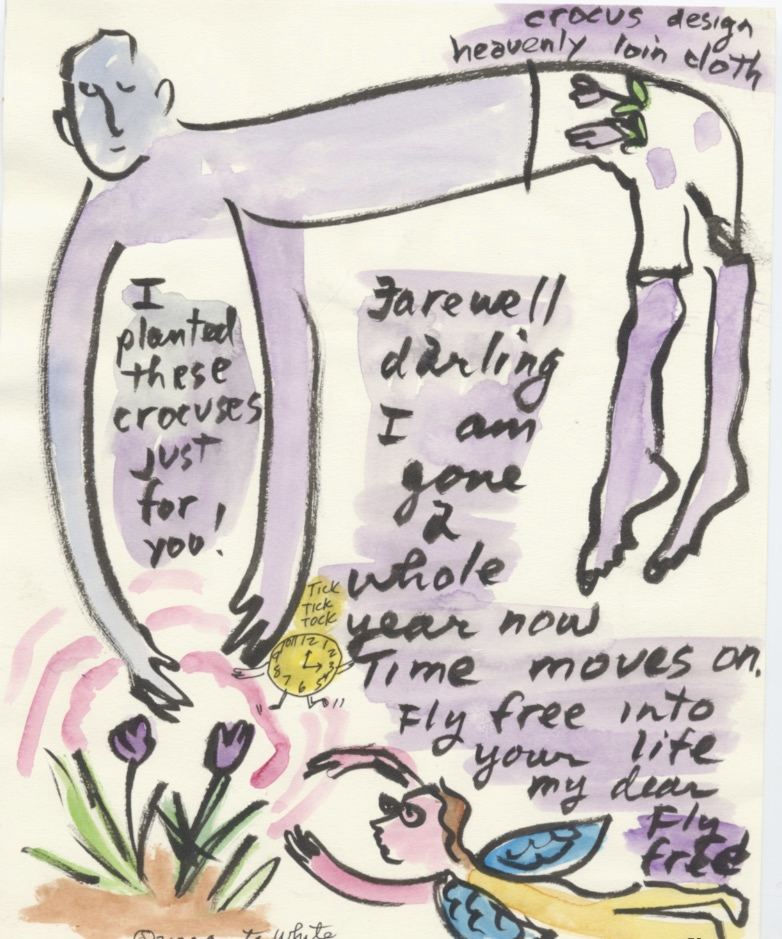 crocus design
heavenly loin cloth
I
planted
these
crocuses
just
for
you!
Farewell
darling
I am
gone
a
whole
year now
Time moves on.
Fly free into
your life
my dear
Fly
free
Tick
Tick
Tock
10 11 12 1
9 2
8 3
7 6 5
White